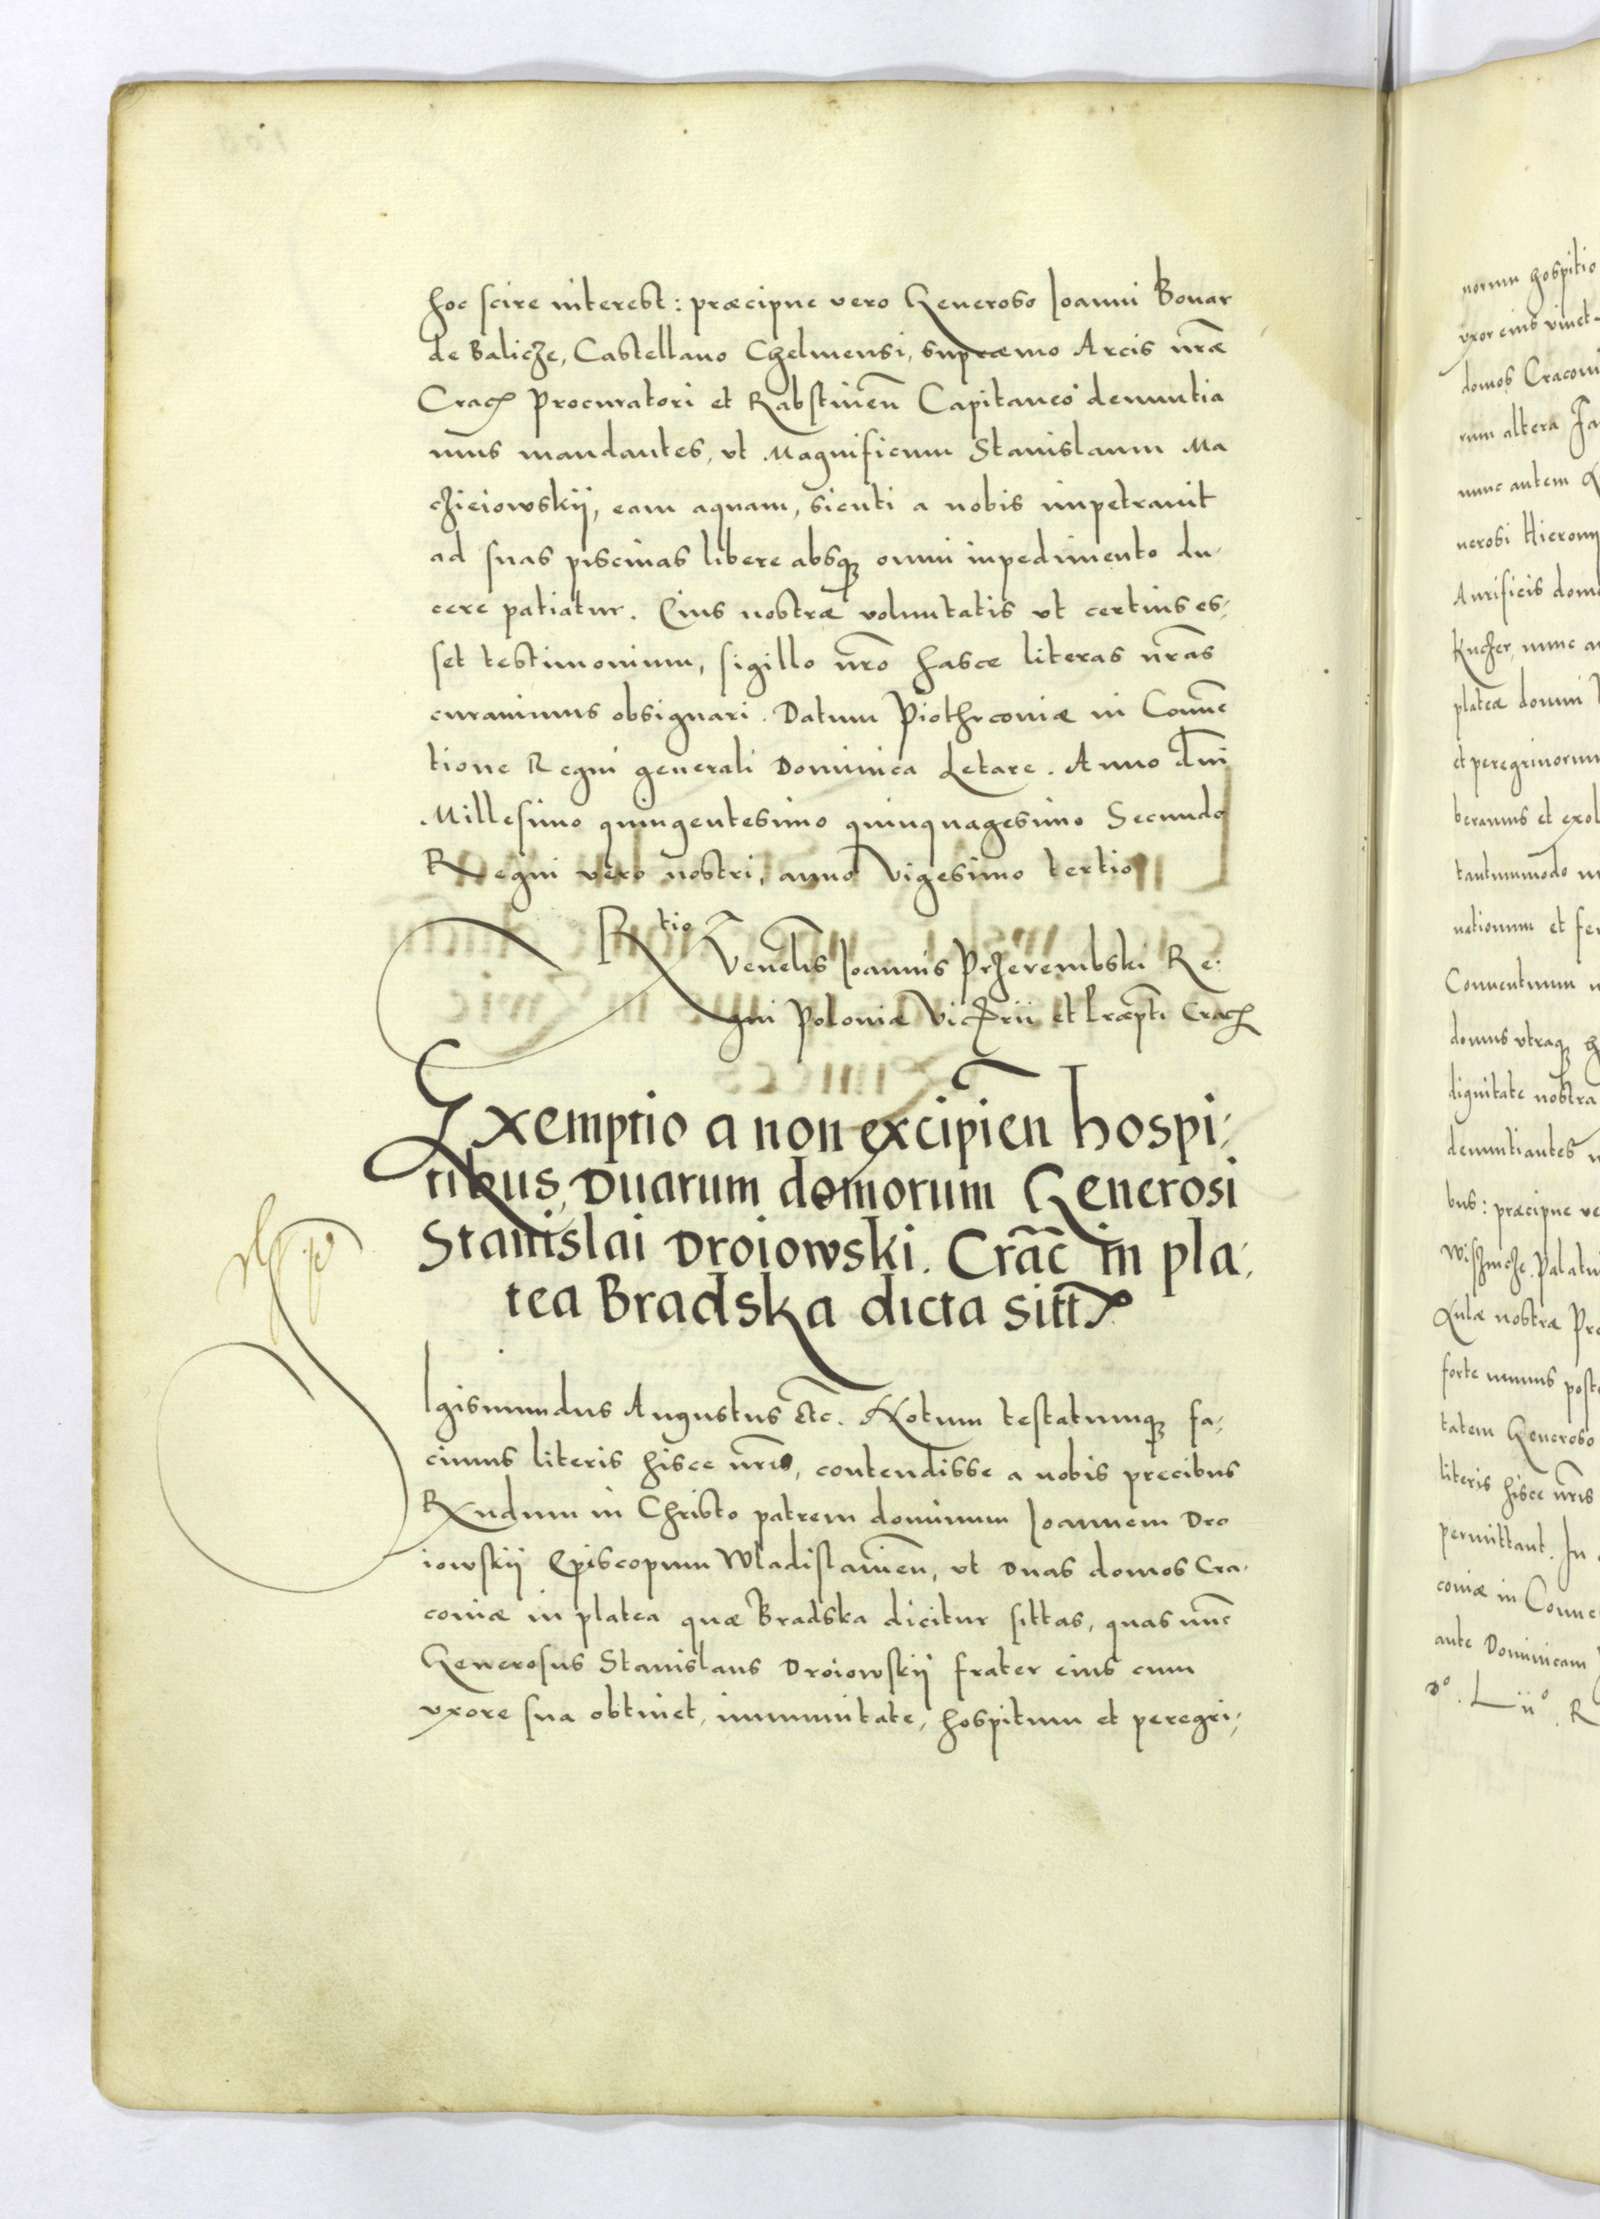 hoc scire interest: præcipue vero Generoso Joanni Bonar
de Balicze, Castellano Chelmensi, supræmo Arcis nr̃æ
Crac Procuratori et Rabstinen̄ Capitaneo denuntia
mus mandantes, vt Magnificum Stanislaum Ma
cziciowskij, eam aquam, sicuti a nobis impetrauit
ad suas piscinas libere absq; omni inpedimento du-
cere patiatur. Cuius nostræ voluntatis vt certius es-
set testimonium, sigillo nr̃o hasce literas nr̃as
curauimus obsignari. Datum Piothrcouiæ in Conuē
tione Regni generali Dominica Letare. Anno dñi
Millesimo quingentesimo quinquagesimo Secundo
Regni vero nostri, anno vigesimo tertio
Rtio
Venelis Joannis Przerembski Re-
gni Poloniæ Vicecrii et Præpti Crac
Exemptio a non excipien̄ hospi-
tibus, Duarum domorum Generosi
Stanislai Droiowski. Crac̄ in pla-
tea Bradska dicta sitt
Igismundus Augustus etc. Notum testatumq; fa-
cimus literis hisce nr̃is, contendisse a nobis precibus
Rndum in Christo patrem dominum Joannem Dro
iowskij Episcopum Wladislauien̄, vt duas domos Cra-
couiæ in platea quæ Bradska dicitur sittas, quas nūc
Generosus Stanislaus Droiowskij frater eius cum
vxore sua obtinet, immunitate, hospitum et peregri-
norum hospitio
vxor eius
domos Cracoui
rum altera
nunc autem
nerosi Hierony
Aurificis domo
Kuczer, nunc au
plateæ domini
et peregrinorum
beramus et exol
tantummodo
netiorum et
Conuentuum
domus vtraq;
dignitate nostra
denuntiantes
bus: præcipue ve
Palatin
Aulæ nostræ Præ
forte nemus
tatem Generoso
literis hisce nr̃is
permittant. In
couiæ in Conue
ante Dominicam
Lii° R